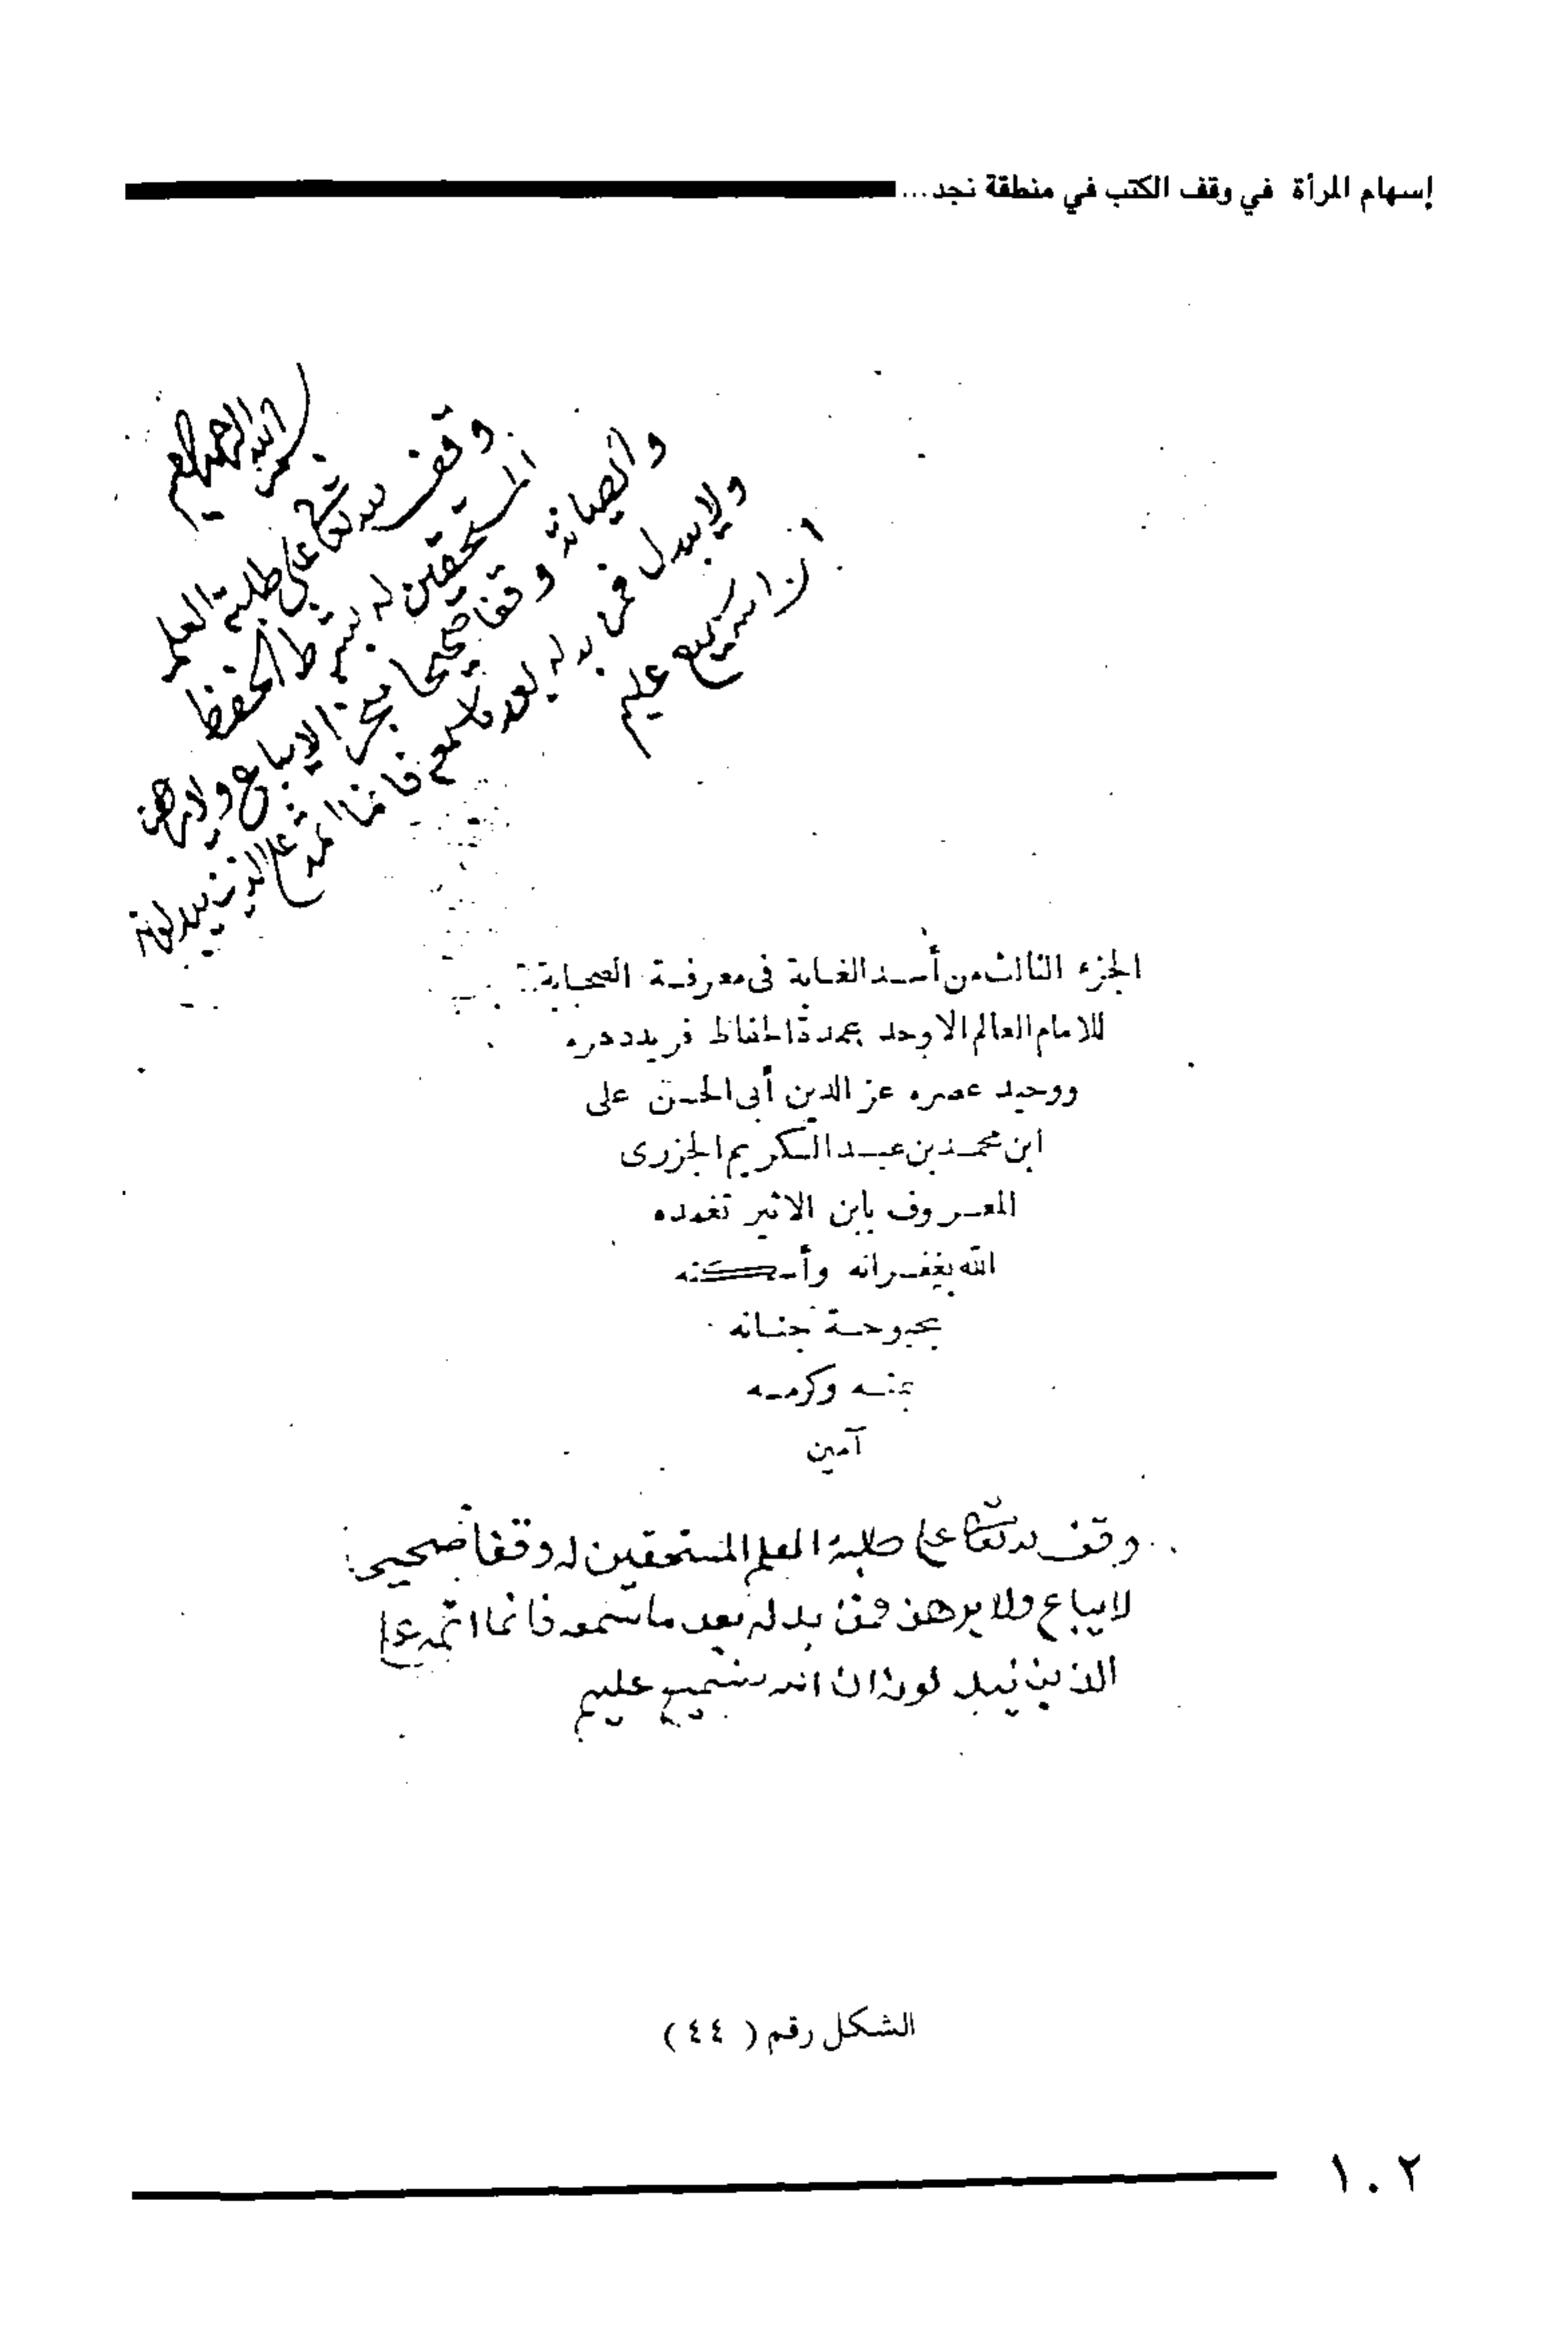 إسهام المرأة في وقف الكتب في منطقة نجد ...
بسم الله الرحمن الرحيم
وقف لله تعالى على طلبة العلم
المستحقين له بشرط الحفظ
والصيانة وقفا صحيحا منجزا لا يباع ولا يرهن
ولا يبدل فمن بدله بعد ما سمعه فانما اثمه على الذين يبدلونه
ان الله سميع عليم
الجزء الثالث من أسد الغابة فى معرفة الصحابة
للامام العالم الاوحد عمدة الحفاظ فريد دهره
ووحيد عصره عز الدين أبى الحسن على
ابن محمد بن عبد الكريم الجزرى
المعروف بابن الاثير تغمده
الله بغفرانه وأسكنه
بحبوحة جنانه
بمنه وكرمه
آمين
وقف لله تعالى على طلبة العلم المستحقين له وقفا صحيحا
لا يباع ولا يرهن فمن بدله بعد ما سمعه فانما اثمه على
الذين يبدلونه ان الله سميع عليم
الشكل رقم ( ٤٤ )
١٠٢